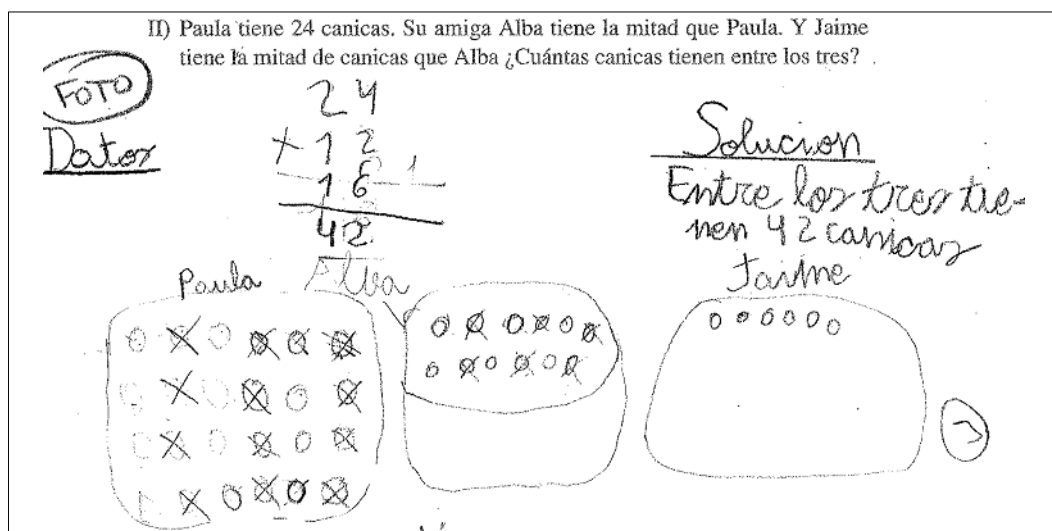 II) Paula tiene 24 canicas. Su amiga Alba tiene la mitad que Paula. Y Jaime
tiene la mitad de canicas que Alba ¿Cuántas canicas tienen entre los tres?
FOTO
Datos
24
+ 12
16
42
Solucion
Entre los tres tie-
nen 42 canicas
Paula
Alva
Jaime